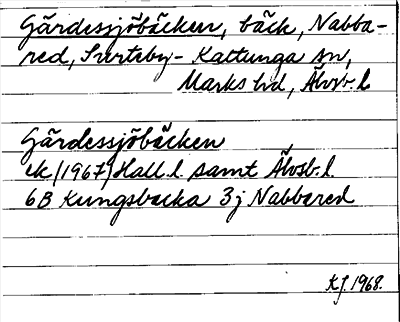 Gärdessjöbäcken, bäck, Nabba-
red, Surteby-Kattunga sn,
Marks hd, Älvsb. l
Gärdessjöbäcken
ek (1967) Hall. l. samt Älvsb. l.
6B Kungsbacka 3j Nabbared
KJ. 1968.